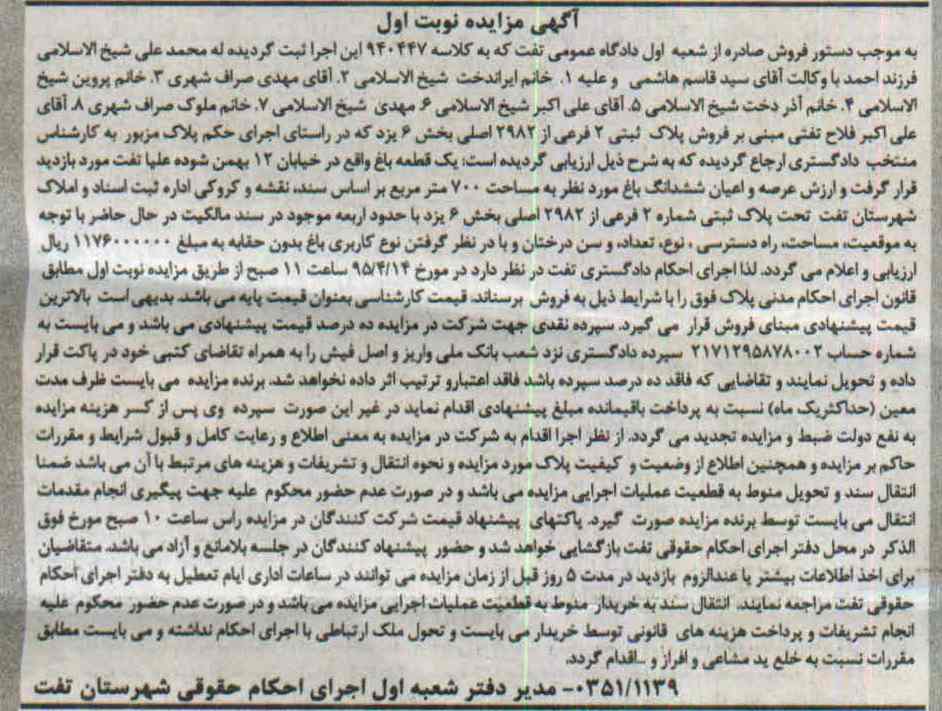 آگهی مزایده نوبت اول
به موجب دستور فروش صادره از شعبه اول دادگاه عمومی تفت که به کلاسه ۹۴۰۴۴۷ این اجرا ثبت گردیده له محمد علی شیخ الاسلامی
فرزند احمد با وکالت آقای سید قاسم هاشمی و علیه ۱. خانم ایراندخت شیخ الاسلامی ۲. آقای مهدی صراف شهری ۳. خانم پروین شیخ
الاسلامی ۴. خانم آذر دخت شیخ الاسلامی ۵. آقای علی اکبر شیخ الاسلامی ۶. مهدی شیخ الاسلامی ۷. خانم ملوک صراف شهری ۸. آقای
علی اکبر فلاح تفتی مبنی بر فروش پلاک ثبتی ۲ فرعی از ۲۹۸۲ اصلی بخش ۶ یزد که در راستای اجرای حکم پلاک مزبور به کارشناس
منتخب دادگستری ارجاع گردیده که به شرح ذیل ارزیابی گردیده است: یک قطعه باغ واقع در خیابان ۱۲ بهمن شوده علیا تفت مورد بازدید
قرار گرفت و ارزش عرصه و اعیان ششدانگ باغ مورد نظر به مساحت ۷۰۰ متر مربع بر اساس سند، نقشه و کروکی اداره ثبت اسناد و املاک
شهرستان تفت تحت پلاک ثبتی شماره ۲ فرعی از ۲۹۸۲ اصلی بخش ۶ یزد با حدود اربعه موجود در سند مالکیت در حال حاضر با توجه
به موقعیت، مساحت، راه دسترسی ، نوع، تعداد، و سن درختان و با در نظر گرفتن نوع کاربری باغ بدون حقابه به مبلغ ۱۱۷۶۰۰۰۰۰۰ ریال
ارزیابی و اعلام می گردد. لذا اجرای احکام دادگستری تفت در نظر دارد در مورخ ۹۵/۴/۱۴ ساعت ۱۱ صبح از طریق مزایده نوبت اول مطابق
قانون اجرای احکام مدنی پلاک فوق را با شرایط ذیل به فروش برساند. قیمت کارشناسی بعنوان قیمت پایه می باشد. بدیهی است بالاترین
قیمت پیشنهادی مبنای فروش قرار می گیرد. سپرده نقدی جهت شرکت در مزایده ده درصد قیمت پیشنهادی می باشد و می بایست به
شماره حساب ۲۱۷۱۲۹۵۸۷۸۰۰۲ سپرده دادگستری نزد شعب بانک ملی واریز و اصل فیش را به همراه تقاضای کتبی خود در پاکت قرار
داده و تحویل نمایند و تقاضایی که فاقد ده درصد سپرده باشد فاقد اعتبارو ترتیب اثر داده نخواهد شد. برنده مزایده می بایست ظرف مدت
معین (حداکثریک ماه) نسبت به پرداخت باقیمانده مبلغ پیشنهادی اقدام نماید در غیر این صورت سپرده وی پس از کسر هزینه مزایده
به نفع دولت ضبط و مزایده تجدید می گردد. از نظر اجرا اقدام به شرکت در مزایده به معنی اطلاع و رعایت کامل و قبول شرایط و مقررات
حاکم بر مزایده و همچنین اطلاع از وضعیت و کیفیت پلاک مورد مزایده و نحوه انتقال و تشریفات و هزینه های مرتبط با آن می باشد ضمنا
انتقال سند و تحویل منوط به قطعیت عملیات اجرایی مزایده می باشد و در صورت عدم حضور محکوم علیه جهت پیگیری انجام مقدمات
انتقال می بایست توسط برنده مزایده صورت گیرد. پاکتهای پیشنهاد قیمت شرکت کنندگان در مزایده راس ساعت ۱۰ صبح مورخ فوق
الذکر در محل دفتر اجرای احکام حقوقی تفت بازگشایی خواهد شد و حضور پیشنهاد کنندگان در جلسه بلامانع و آزاد می باشد. متقاضیان
برای اخذ اطلاعات بیشتر یا عندالزوم بازدید در مدت ۵ روز قبل از زمان مزایده می توانند در ساعات اداری ایام تمطیل به دفتر اجرای احکام
حقوقی تفت مراجعه نمایند. انتقال سند به خریدار منوط به قطعیت عملیات اجرایی مزایده می باشد و در صورت عدم حضور محکوم علیه
انجام تشریفات و پرداخت هزینه های قانونی توسط خریدار می بایست و تحول ملک ارتباطی با اجرای احکام نداشته و می بایست مطابق
مقررات نسبت به خلع ید مشاعی و افراز و ..اقدام گردد.
۰۳۵۱/۱۱۳۹- مدیر دفتر شعبه اول اجرای احکام حقوقی شهرستان تفت